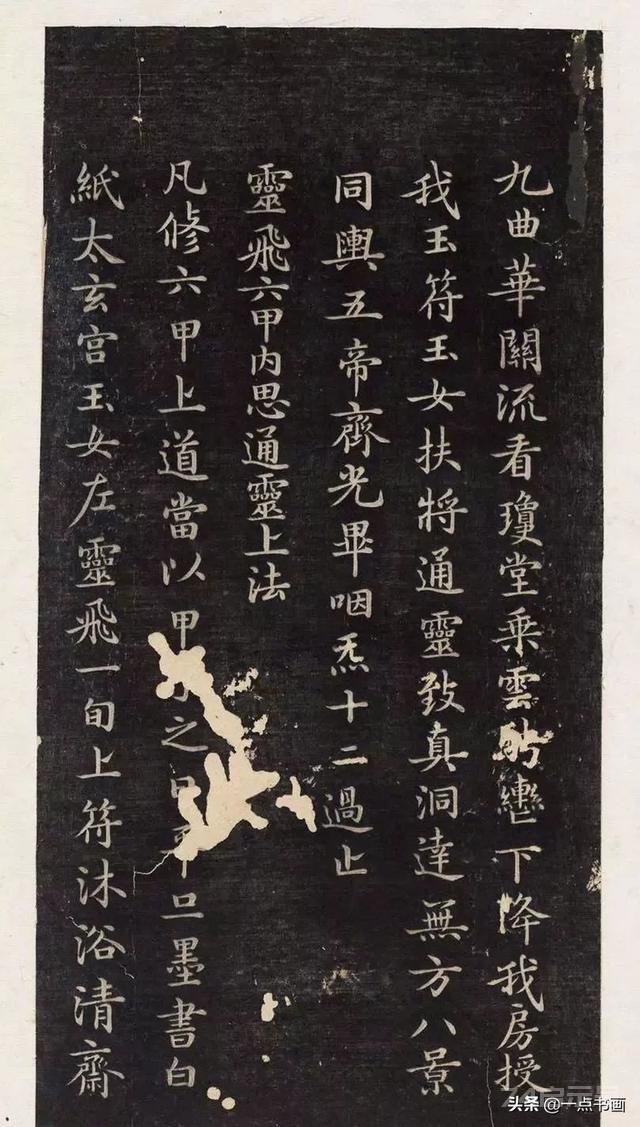 九曲華關流看瓊堂乘雲轡下降我房授
我玉符玉女扶將通靈致真洞達無方八景
同輿五帝齊光畢咽炁十二過止
靈飛六甲內思通靈上法
凡修六甲上道當以甲之日平旦墨書白
紙太玄宮玉女左靈飛一旬上符沐浴清齋
头条 @一点书画